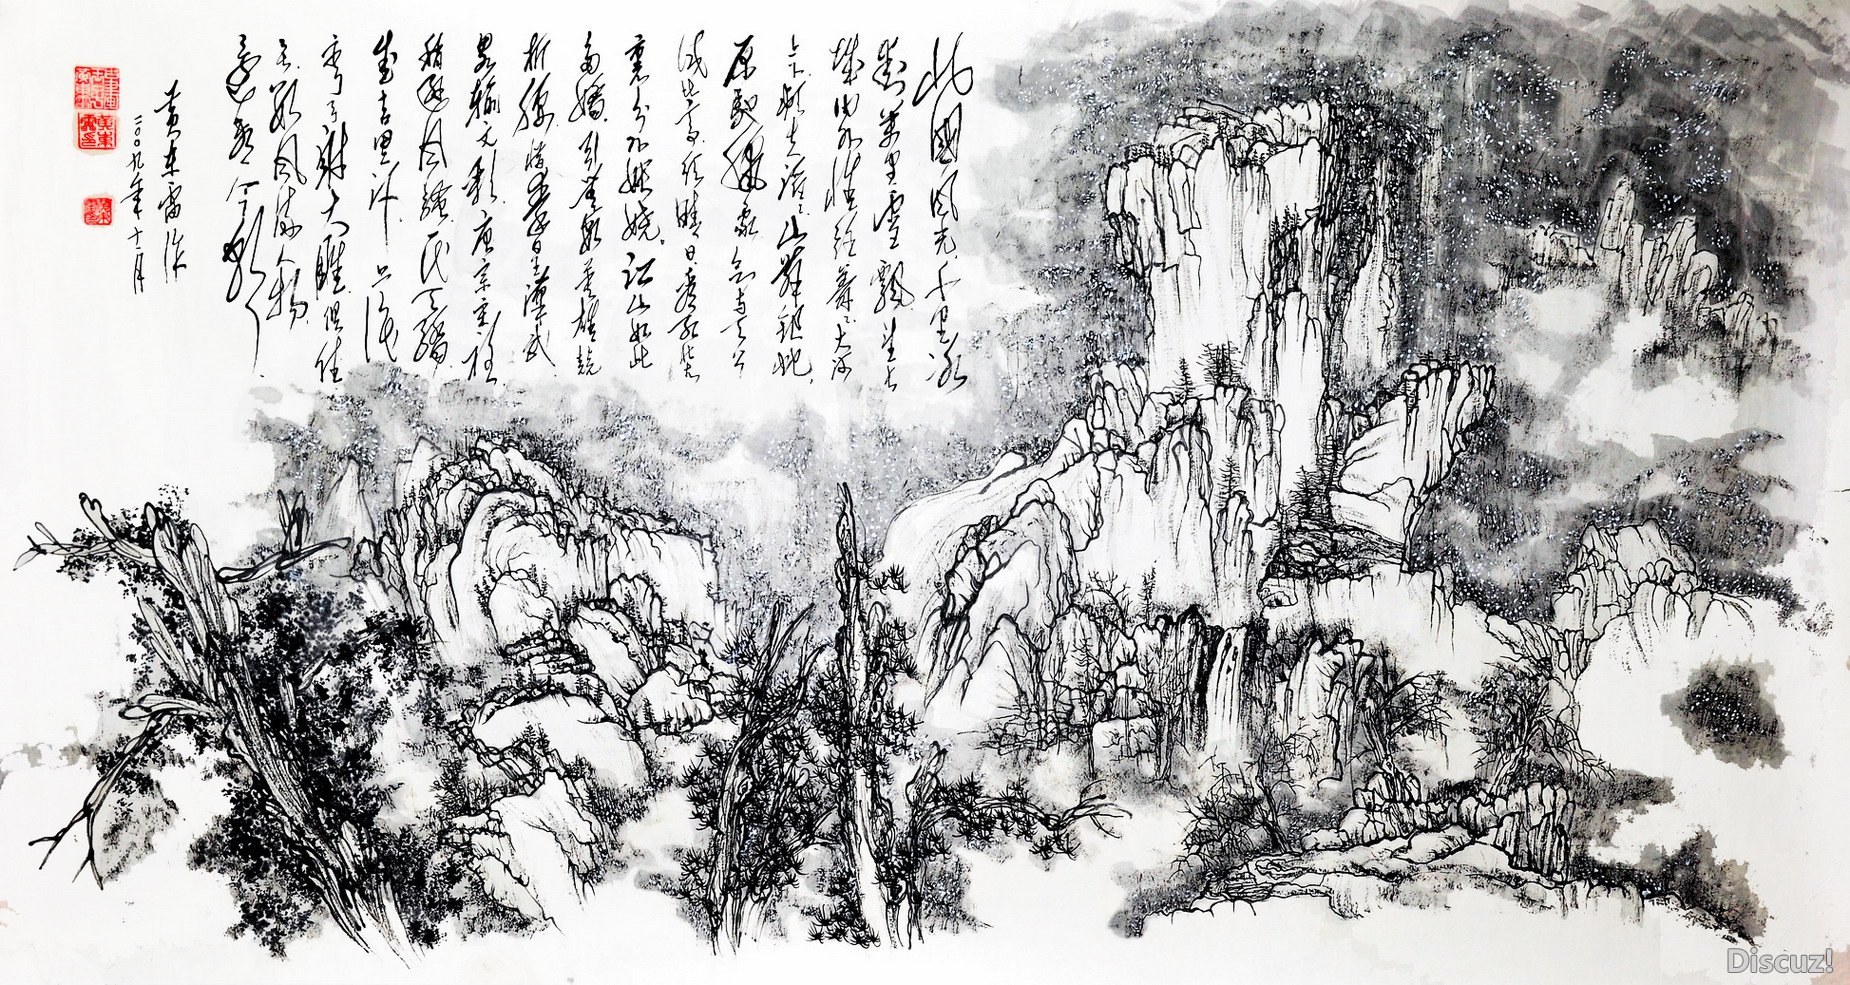 北國風光千里冰
封萬里雪飄望长
城内外惟餘莽莽大河
上下顿失滔滔山舞銀蛇
原馳蠟象欲与天公
试比高须晴日看红装素
裹分外妖娆江山如此
多嬌引無数英雄競
折腰惜秦皇漢武
略输文彩唐宗宋祖
稍逊风骚一代天骄
成吉思汗只识
弯弓射大雕俱往
矣数风流人物
还看今朝
黄东雷作
二〇〇九年十二月
Discuz!